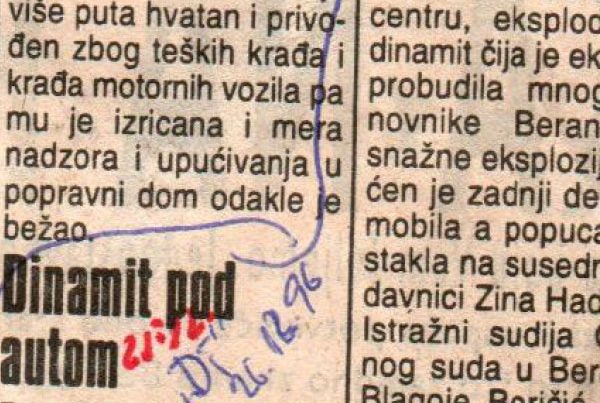 više puta hvatan i privo-
đen zbog teških krađa i
krađa motornih vozila pa
mu je izricana i mera
nadzora i upućivanja u
popravni dom odakle je
bežao.
Dinamit pod
autom
21.12.
26. 12. 96
centru, eksplod
dinamit čija je ek
probudila mnog
novnike Beran
snažne eksplozij
ćen je zadnji de
mobila a popuca
stakla na susedn
davnici Zina Had
Istražni sudija O
nog suda u Ber
Blagoje Boričić